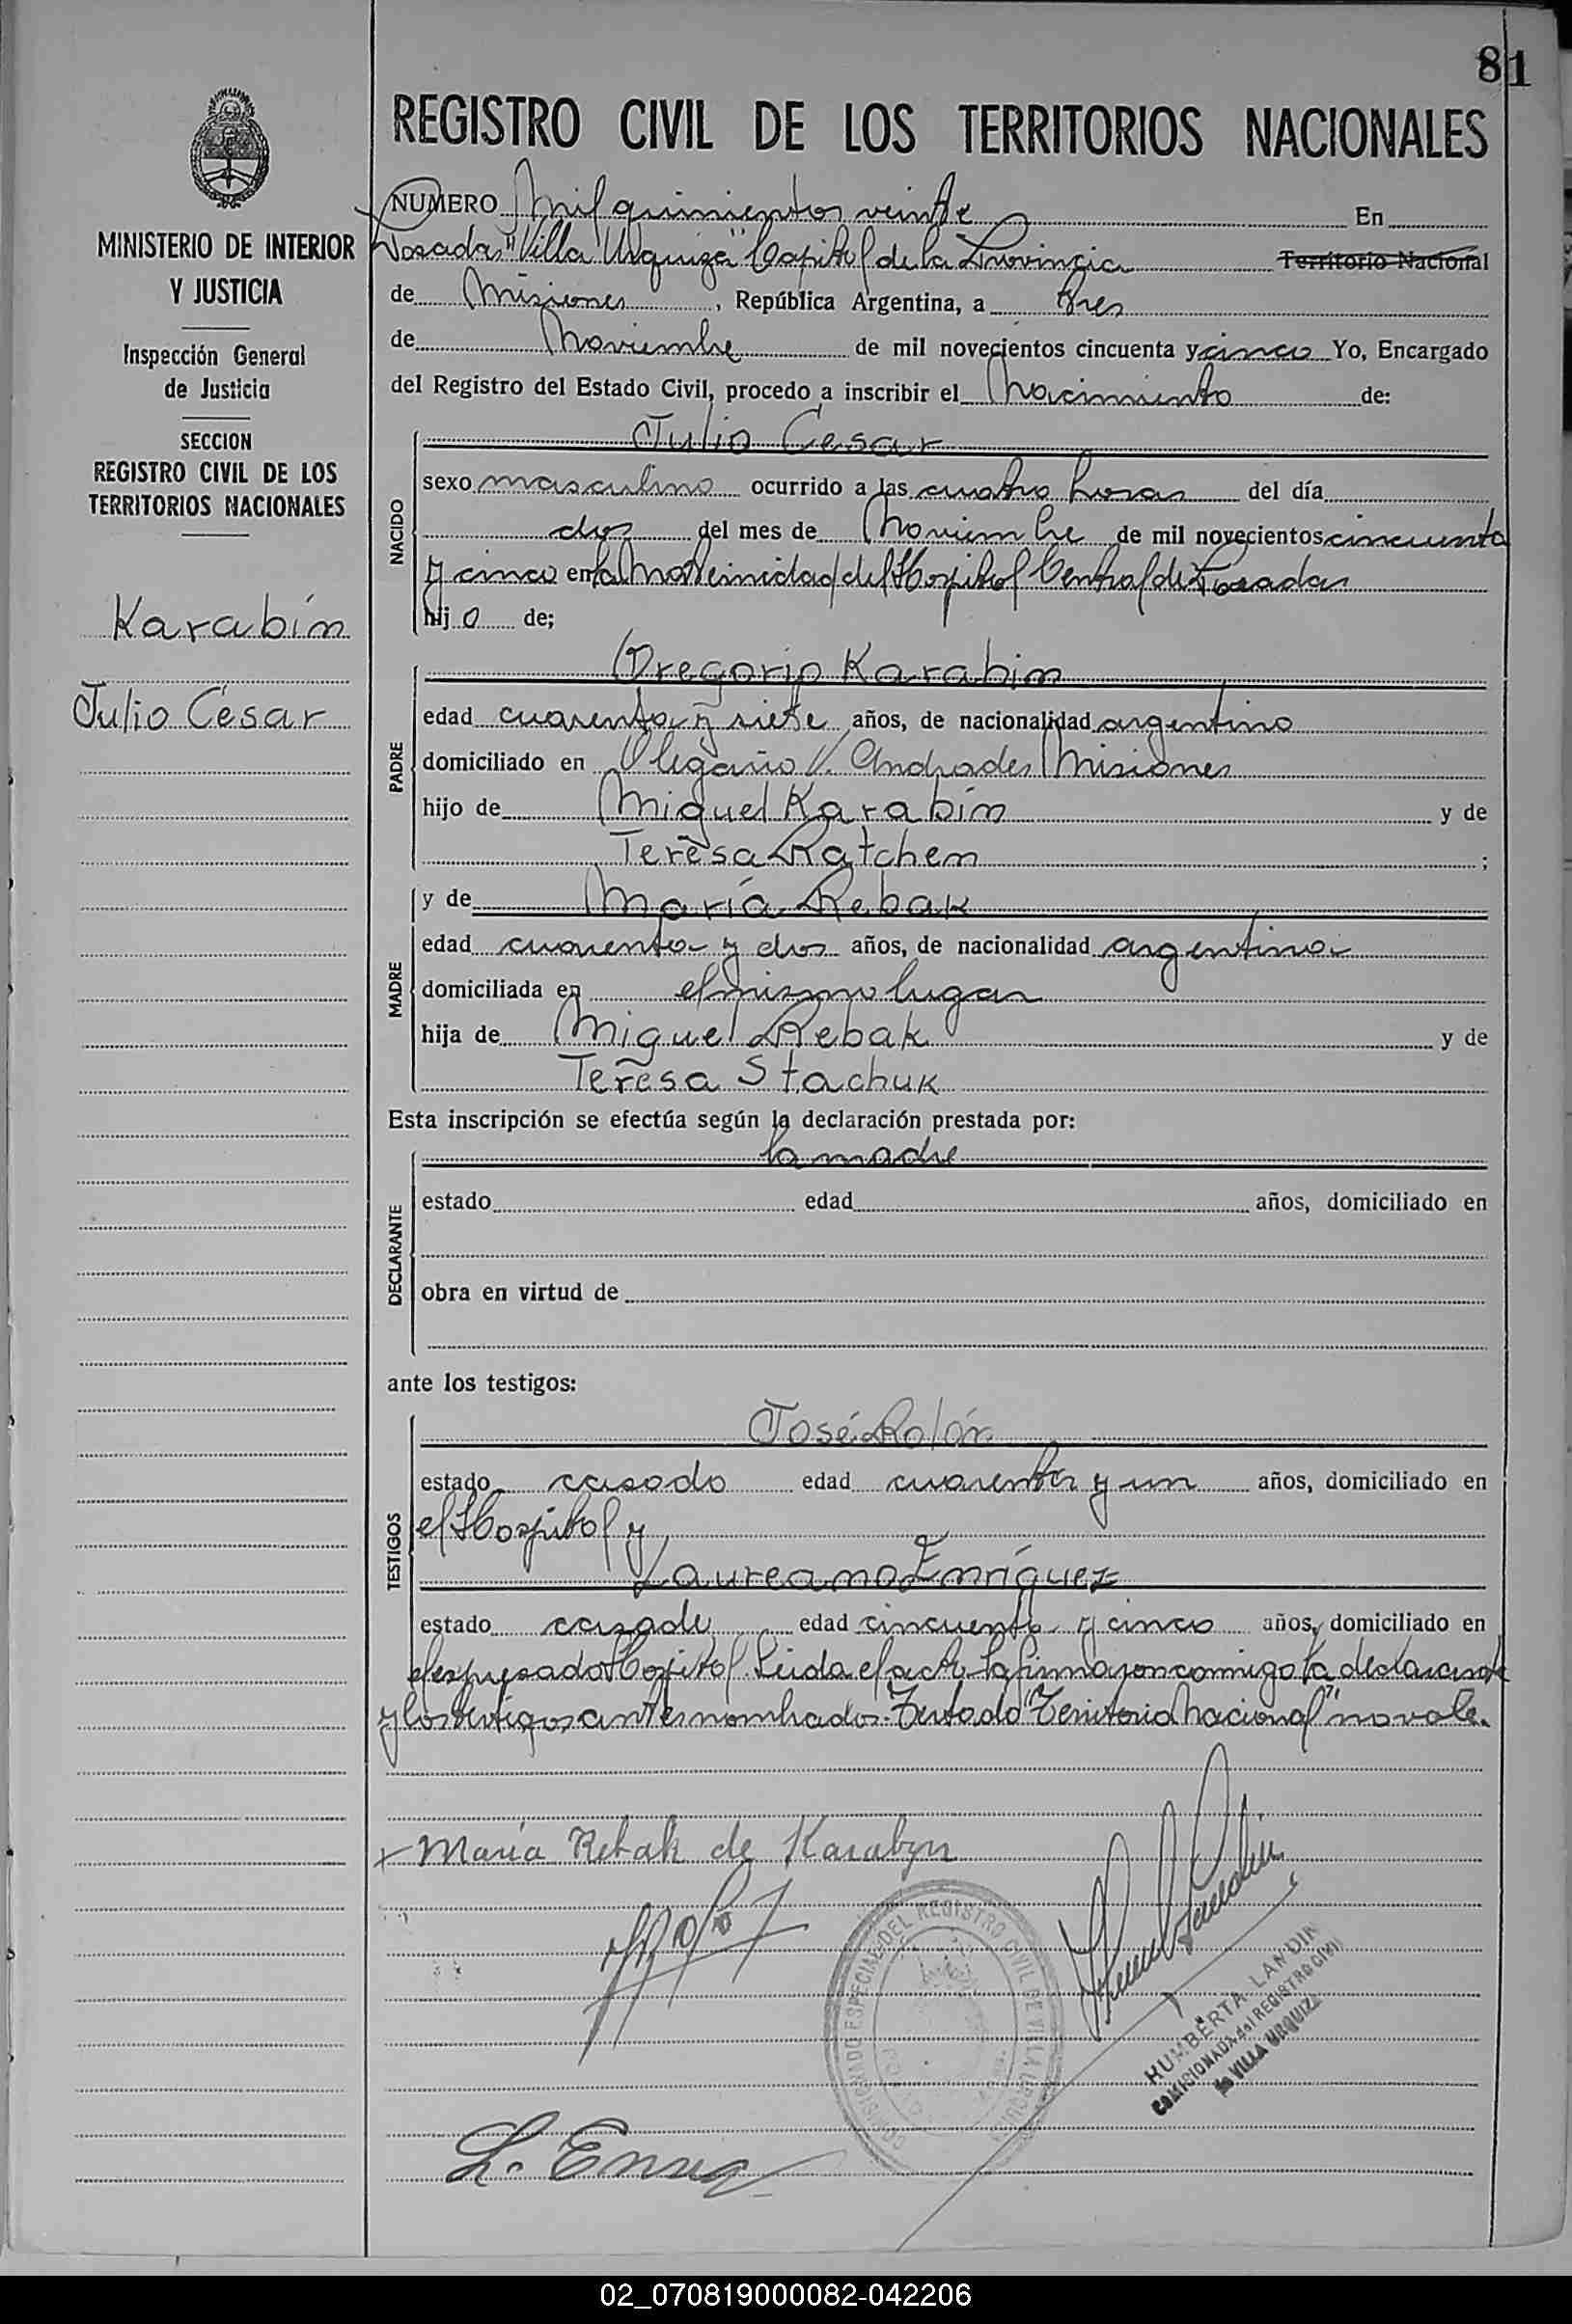 81
REGISTRO CIVIL DE LOS TERRITORIOS NACIONALES
MINISTERIO DE INTERIOR
Y JUSTICIA
Inspección General
de Justicia
SECCION
REGISTRO CIVIL DE LOS
TERRITORIOS NACIONALES
Karabín
Julio César
NUMERO Mil quinientos veinte En
Posadas "Villa Urquiza" Capital de la Provincia Territorio Nacional
de Misiones, República Argentina, a tres
de Noviembre de mil novecientos cincuenta y cinco Yo, Encargado
del Registro del Estado Civil, procedo a inscribir el Nacimiento de:
NACIDO
Julio César
sexo masculino ocurrido a las cuatro horas del día
dos del mes de Noviembre de mil novecientos cincuenta
y cinco en la Maternidad del Hospital Central de Posadas
hij o de;
PADRE
Gregorio Karabin
edad cuarenta y siete años, de nacionalidad argentino
domiciliado en Olegario V. Andrades Misiones
hijo de Miguel Karabín y de
Teresa Ratchen ;
MADRE
y de María Rebak
edad cuarenta y dos años, de nacionalidad argentina
domiciliada en el mismo lugar
hija de Miguel Rebak y de
Teresa Stachuk
Esta inscripción se efectúa según la declaración prestada por:
DECLARANTE
la madre
estado edad años, domiciliado en
obra en virtud de
ante los testigos:
TESTIGOS
José Rolón
estado casado edad cuarenta y un años, domiciliado en
el Hospital y
Laureano Enríquez
estado casado edad cincuenta y cinco años, domiciliado en
el expresado Hospital. Leida el acta la firmaron conmigo la declarante
y los testigos antes nombrados. Testado "Territorio Nacional" no vale.
María Rebak de Karabyn
L. Enrq
COMISIONADO ESPECIAL DEL REGISTRO CIVIL DE VILLA URQUIZA
HUMBERTA LANDIN
COMISIONADA del REGISTRO CIVIL
de VILLA URQUIZA
02_070819000082-042206